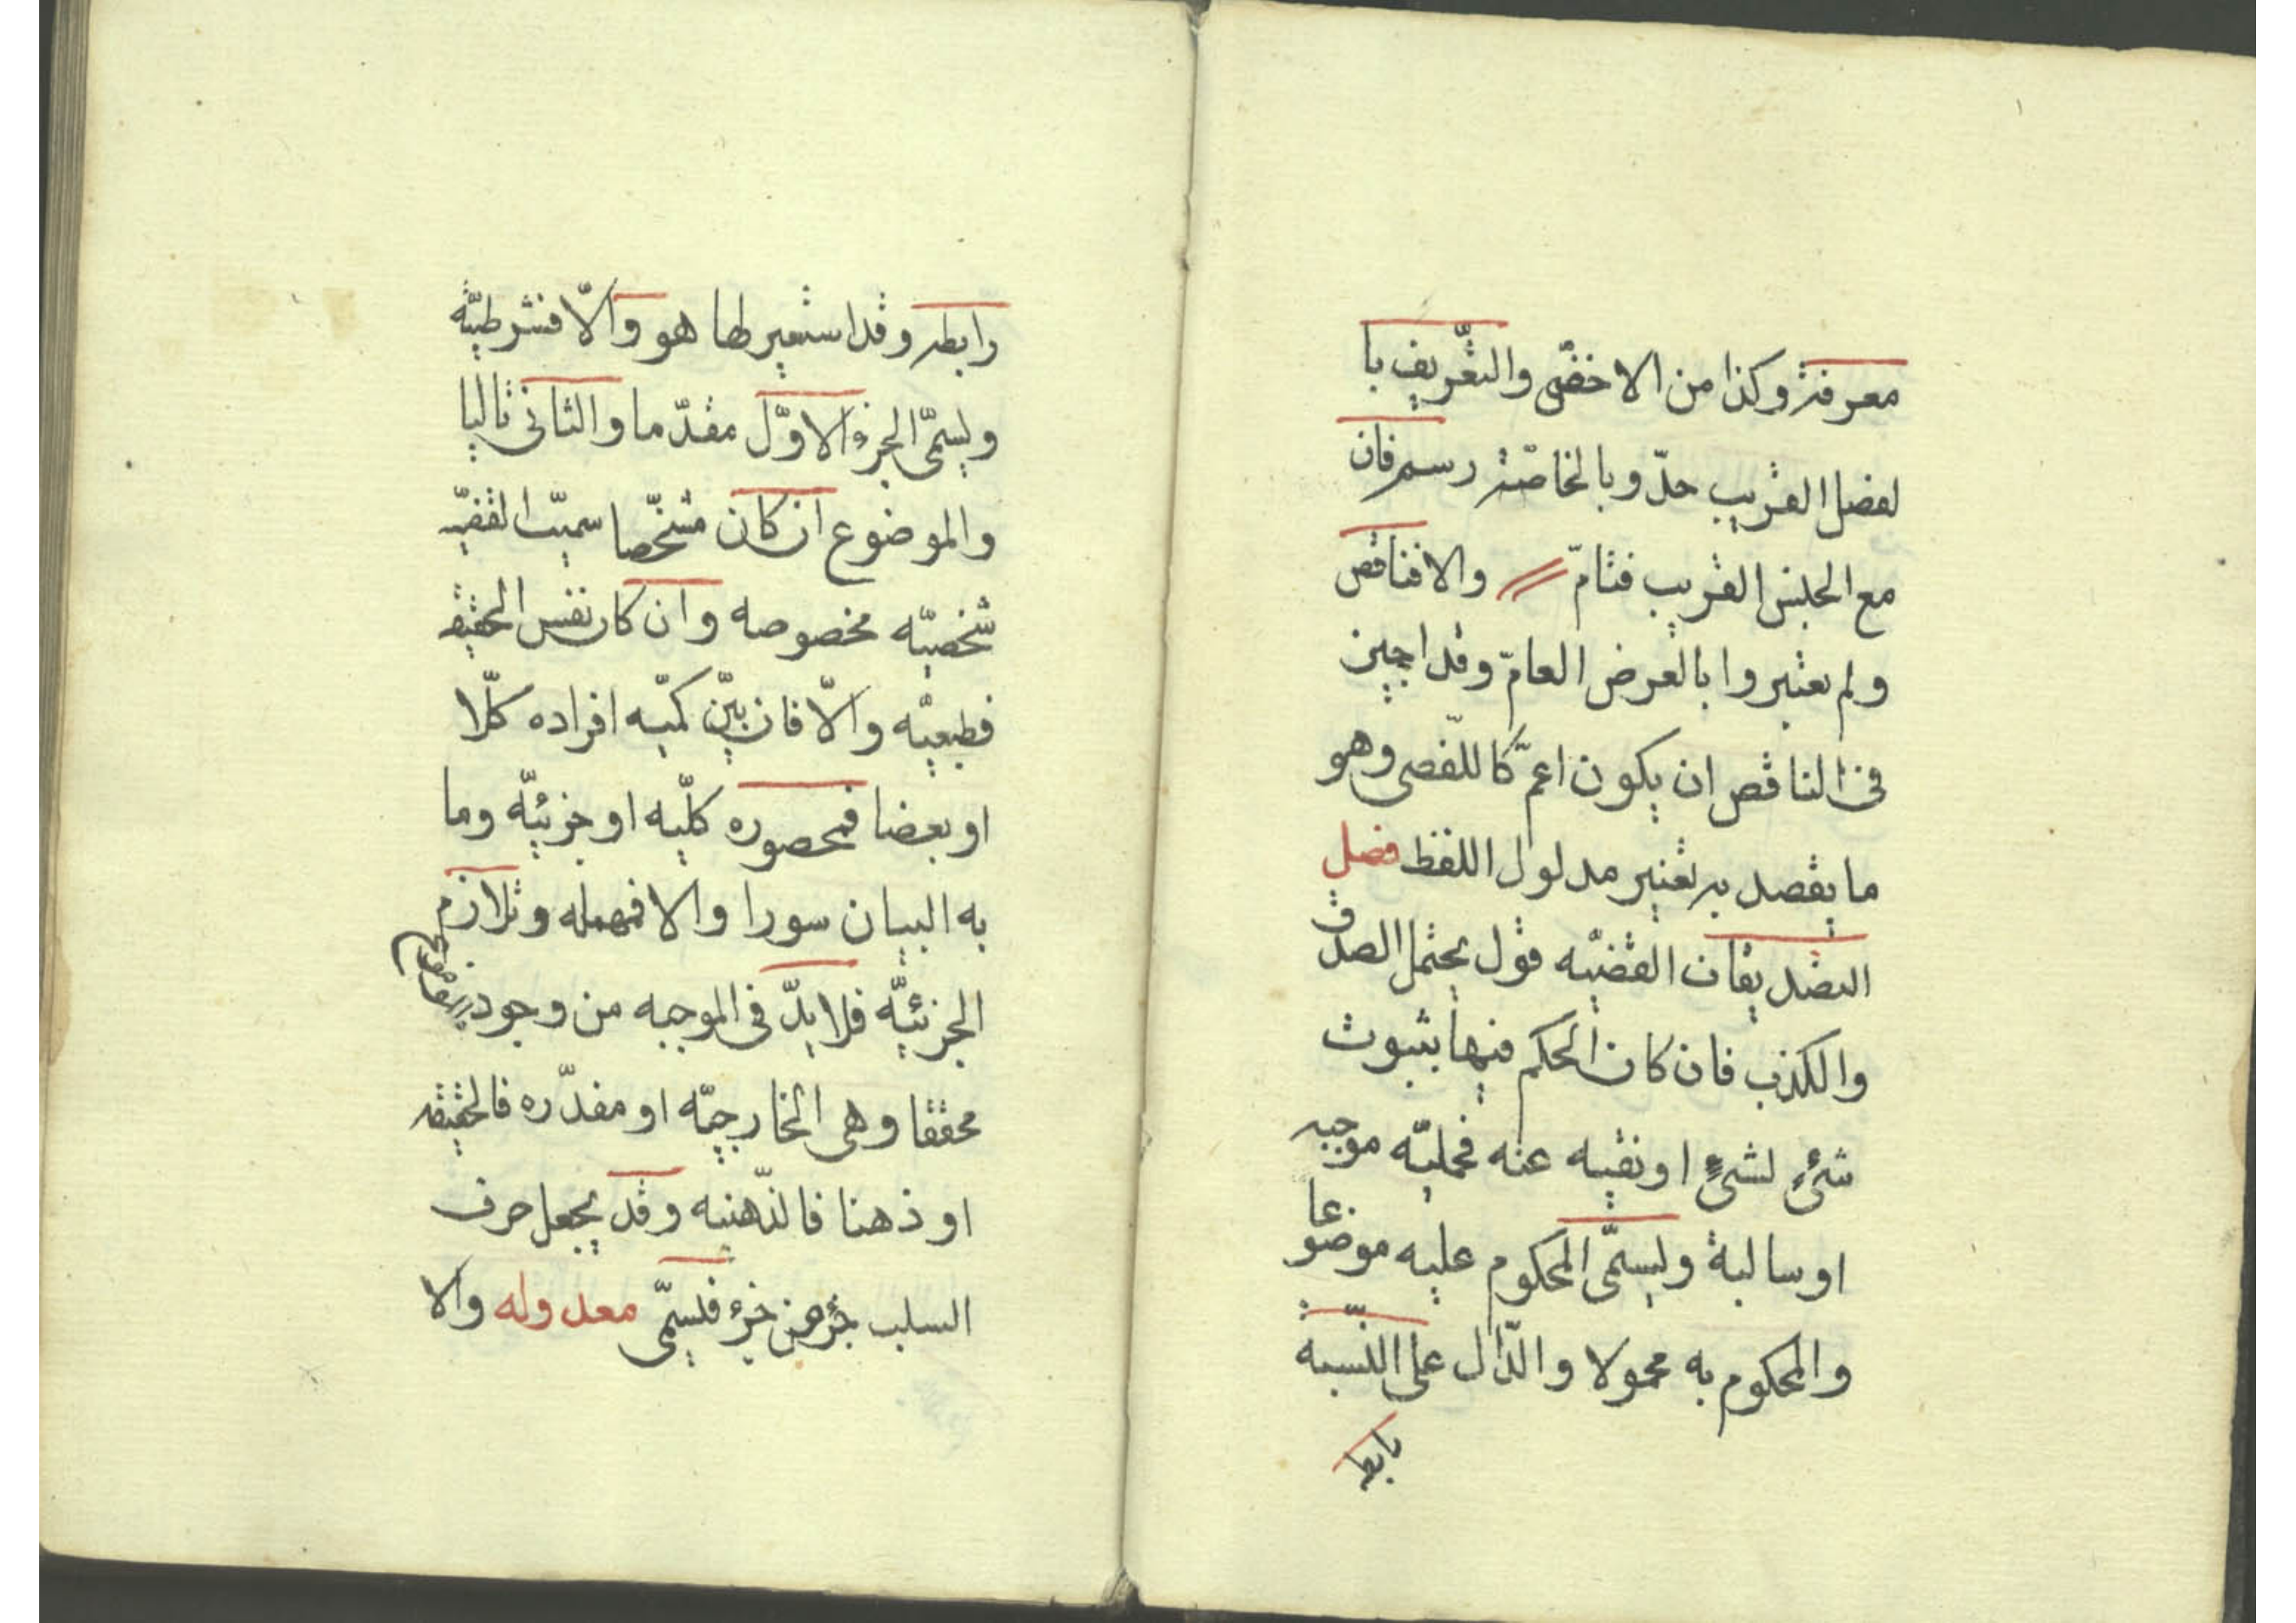 معرفة وكذا من الاخفى والتعريف با
لفصل القريب حدّ وبالخاصّة رسم فان
مع الجنس القريب فتامّ والا فناقص
ولم يعتبروا بالعرض العامّ وقد اجيز
فى الناقص ان يكون اعمّ كاللّفصى وهو
ما يقصد به تفسير مدلول اللفظ فصل
التصديقات القضيّه قول يحتمل الصدق
والكذب فان كان الحكم فيها بثبوت
شئ لشئ او نفيه عنه فحمليّه موجبه
او سالبة ويسمّى المحكوم عليه موضوعا
والمحكوم به محمولا والدّال على النّسبة
رابطه
رابطه وقد استعير لها هو والّا فشرطيّة
ويسمّى الجزء الاوّل مقدّما والثانى تاليا
والموضوع ان كان مشخّصا سميّت القضيّه
شخصيّه مخصوصه وان كان نفس الحقيقه
فطبعيّه والّا فان بيّن كميّه افراده كلّا
او بعضا فمحصوره كليّه او جزئيّه وما
به البيان سورا والا فمهمله وتلازم
الجزئيّه فلا بدّ فى الموجبه من وجود الموضوع
محققا وهى الخارجيّه او مقدّره فالحقيقه
او ذهنا فالذّهنيه وقد يجعل حرف
السلب جزء من جزء فيسمّى معدوله والا